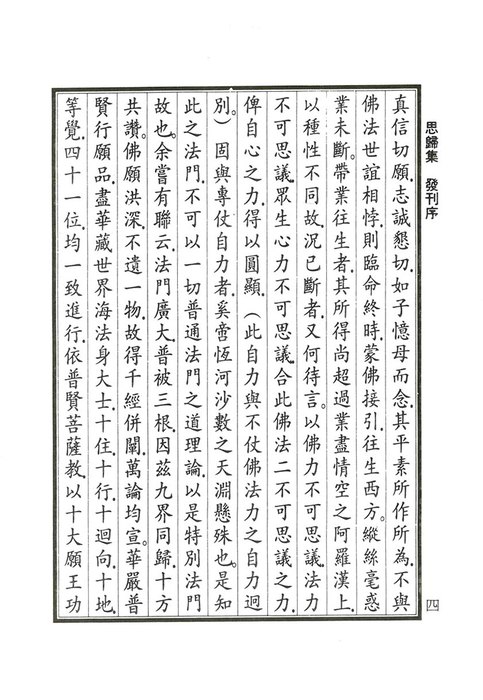 思歸集　發刊序
四
真信切願。志誠懇切。如子憶母而念。其平素所作所為。不與
佛法世誼相悖。則臨命終時。蒙佛接引。往生西方。縱絲毫惑
業未斷。帶業往生者。其所得尚超過業盡情空之阿羅漢上。
以種性不同故。況已斷者。又何待言。以佛力不可思議。法力
不可思議。眾生心力不可思議。合此佛法二不可思議之力。
俾自心之力。得以圓顯。（此自力與不仗佛法力之自力迥
別）固與專仗自力者。奚啻恆河沙數之天淵懸殊也。是知
此之法門。不可以一切普通法門之道理論。以是特別法門
故也。余嘗有聯云。法門廣大。普被三根。因茲九界同歸。十方
共讚。佛願洪深。不遺一物。故得千經併闡。萬論均宣。華嚴普
賢行願品。盡華藏世界海法身大士。十住。十行。十迴向。十地。
等覺。四十一位。均一致進行。依普賢菩薩教。以十大願王功